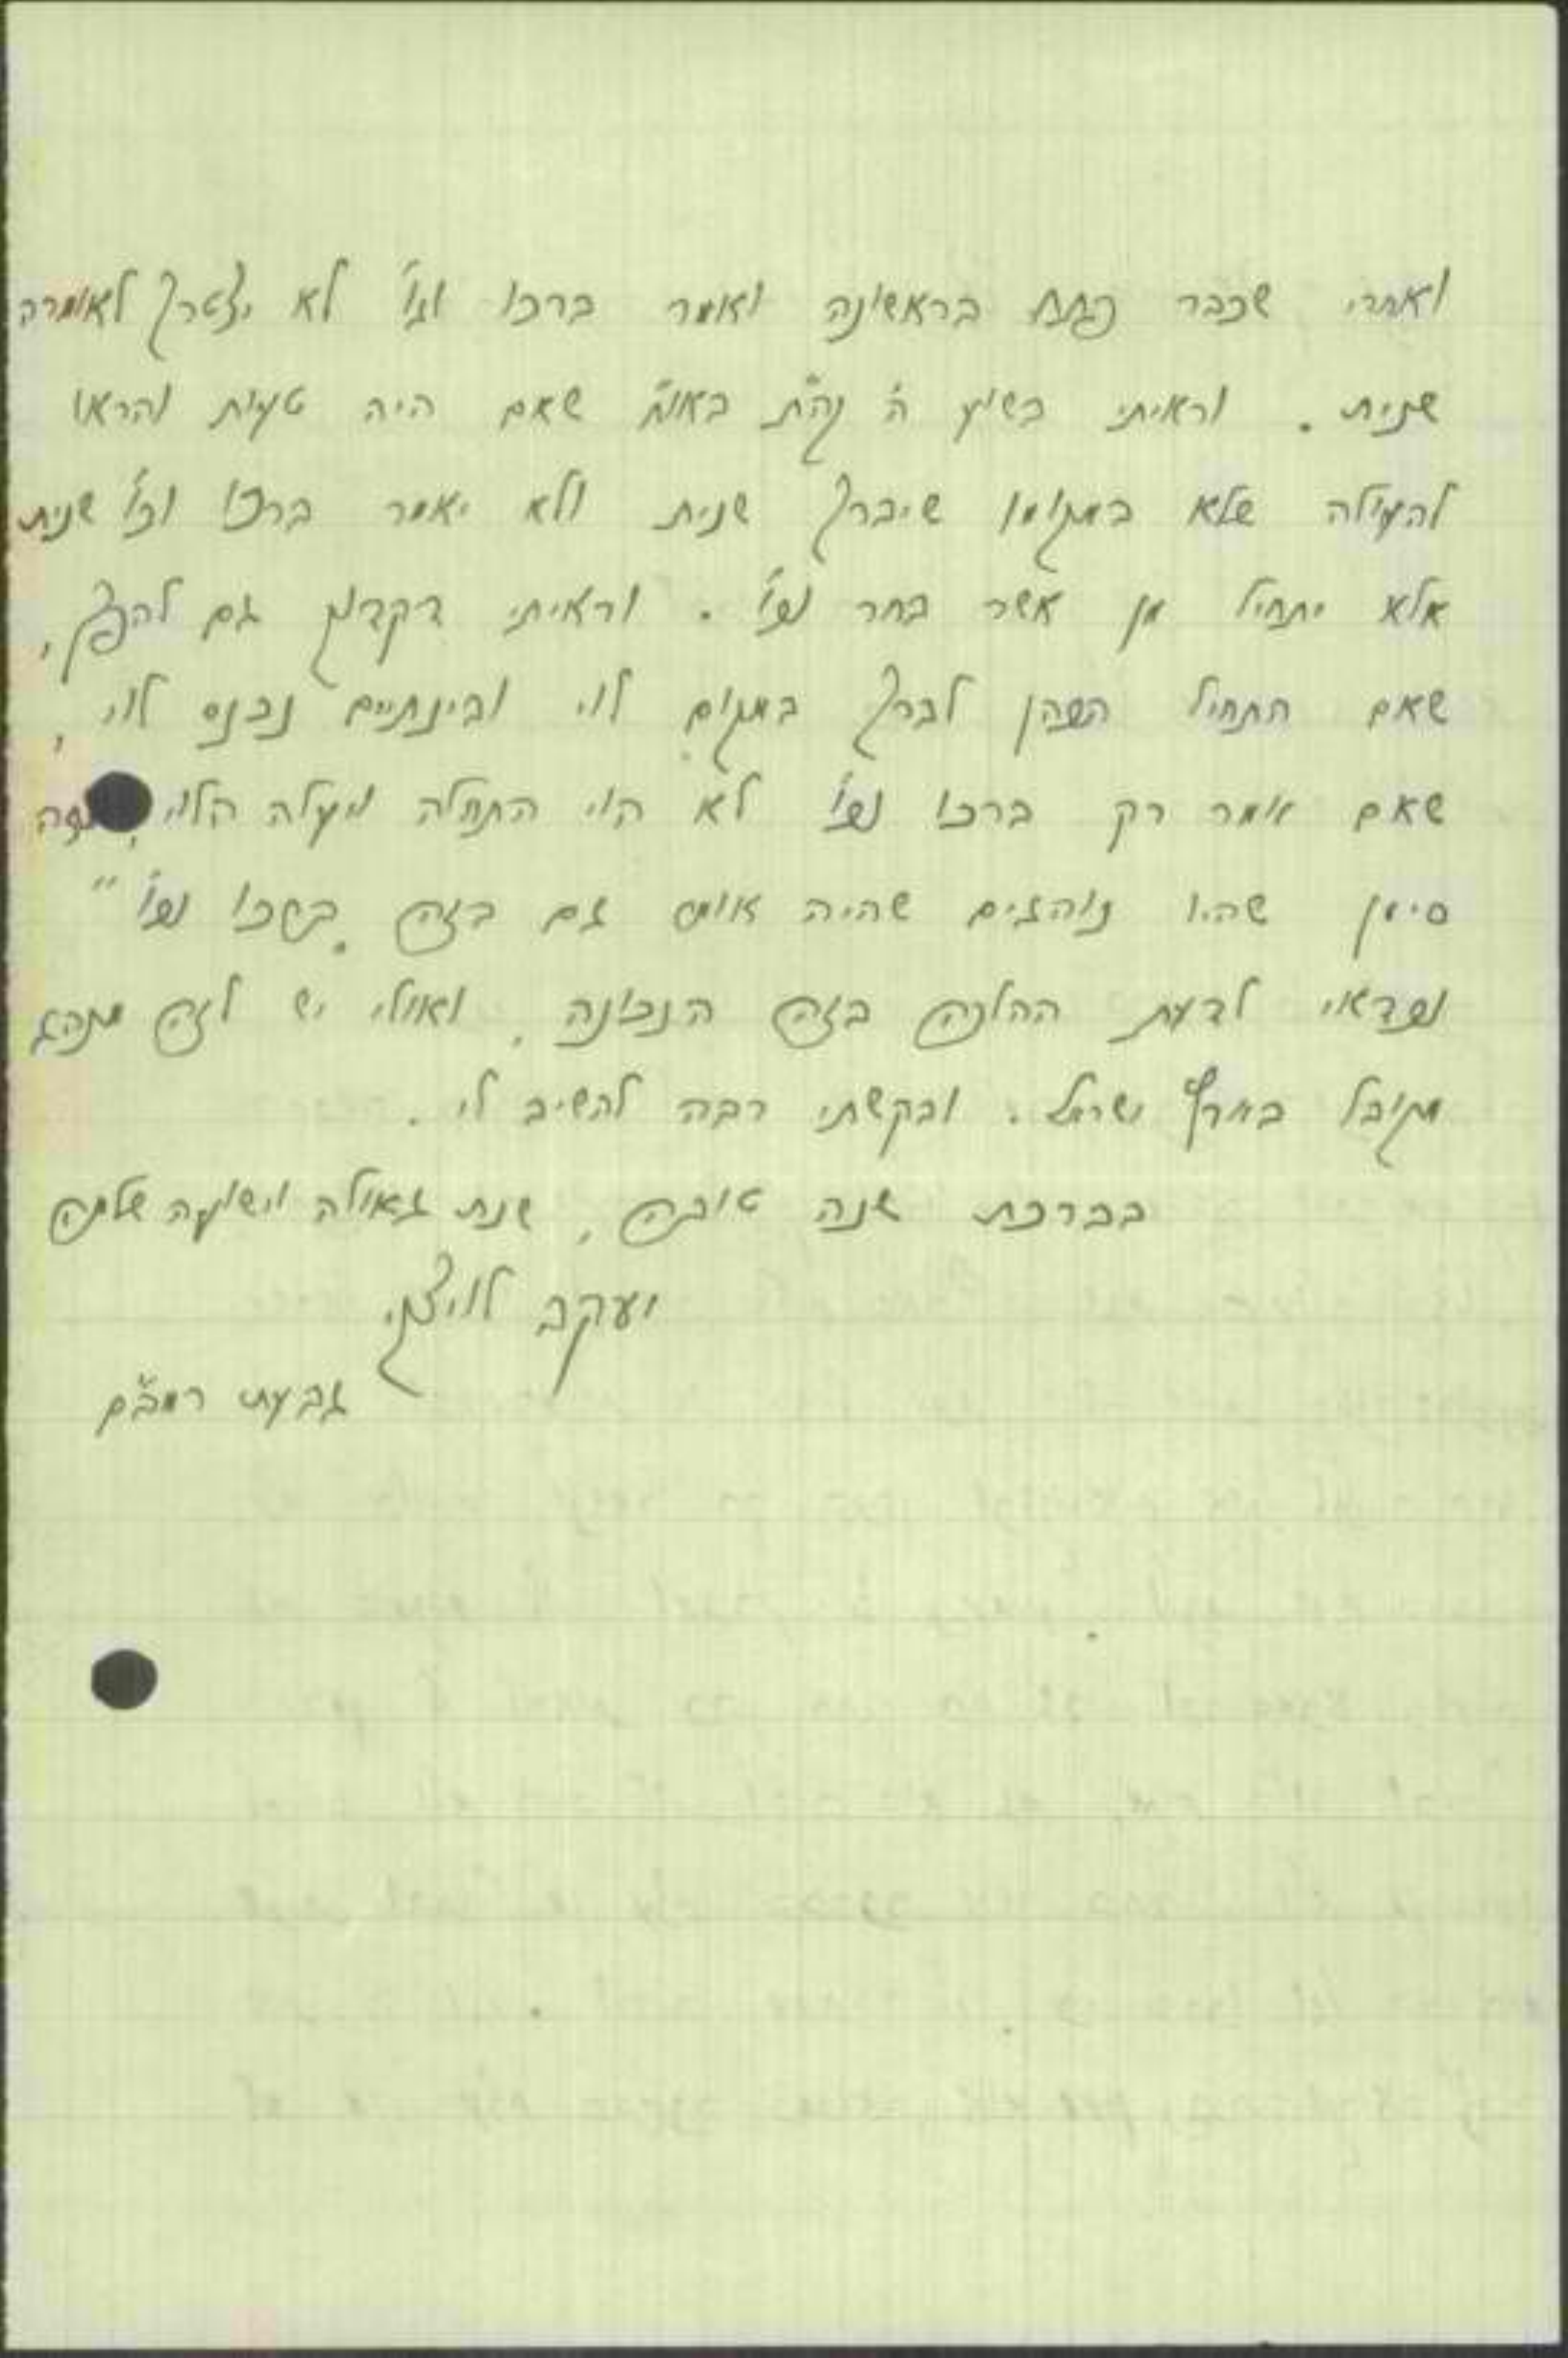 ואחרי שכבר פתח בראשונה ואמר ברכו וגו' לא יצטרך לאומרה
שנית. וראיתי בשו"ע ה' קה"ת באו"ח שאם היה טעות והראו
להעולה שלא במקומו שיברך שנית ולא יאמר ברכו וכו' שנית
אלא יתחיל מן אשר בחר וכו'. וראיתי דקדוק גם להפך,
שאם התחיל הכהן לברך במקום לוי ובינתיים נכנס לוי,
שאם אמר רק ברכו וכו' לא הוי התחלה ויעלה הלוי,
סימן שהיו נוהגים שהיה אומר גם בזה ברכו וכו'"
וכדאי לדעת ההלכה בזה הנכונה. ואולי יש לזה מנהג
מקובל בארץ ישראל. ובקשתי רבה להשיב לי.
בברכת שנה טובה, שנת גאולה וישועה שלמה
יעקב
גבעת רמב"ם